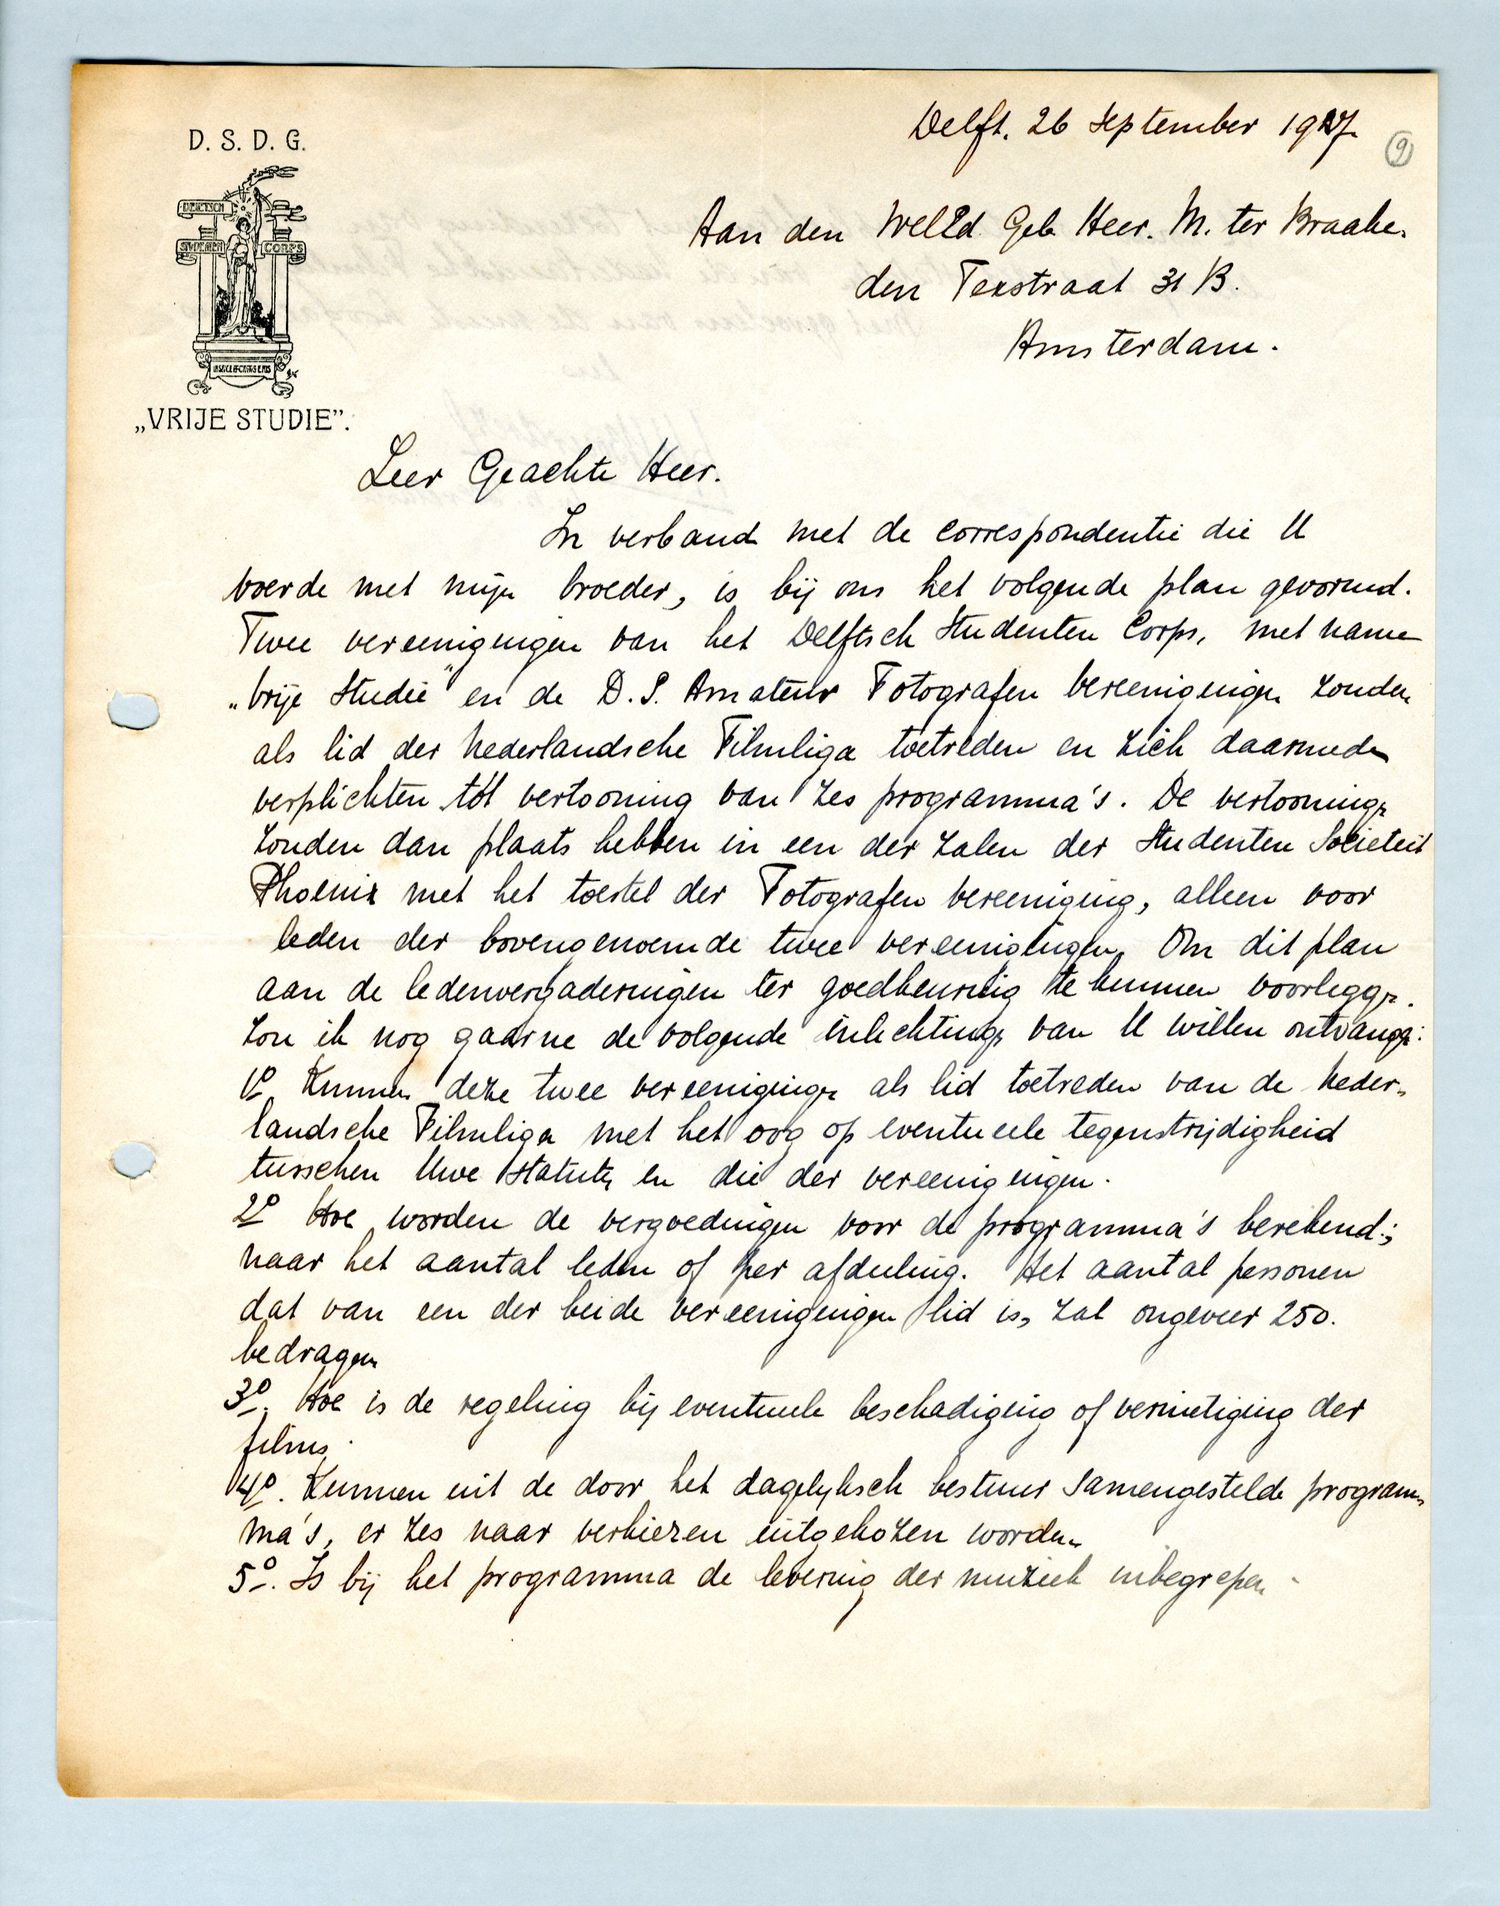 Delft. 26 September 1927
9
D. S. D. G.
DELFTSCH
STUDENTEN CORPS
„VRIJE STUDIE”.
Aan den WelEd. Geb. Heer. M. ter Braake.
den Texstraat 31 B.
Amsterdam.
Zeer Geachte Heer.
In verband met de correspondentie die U
voerde met mijn broeder, is bij ons het volgende plan gevormd.
Twee vereenigingen van het Delftsch Studenten Corps, met name
„Vrije Studie” en de D. S. Amateur Fotografen vereenigingen zouden
als lid der Nederlandsche Filmliga toetreden en zich daarmede
verplichten tot vertooning van zes programma's. De vertooningen
zouden dan plaats hebben in een der zalen der Studenten Societeit
Phoenix met het toestel der Fotografen vereeniging, alleen voor
leden der bovengenoemde twee vereenigingen. Om dit plan
aan de ledenvergaderingen ter goedkeuring te kunnen voorleggen.
zou ik nog gaarne de volgende inlichtingen van U willen ontvangen:
1o Kunnen deze twee vereenigingen als lid toetreden van de Neder-
landsche Filmliga met het oog op eventueele tegenstrijdigheid
tusschen Uwe Statuten en die der vereenigingen.
2o Hoe worden de vergoedingen voor de programma's berekend;
naar het aantal leden of per afdeeling. Het aantal personen
dat van een der beide vereenigingen lid is, zal ongeveer 250.
bedragen
3o. Hoe is de regeling bij eventueele beschadiging of vernietiging der
films.
4o. Kunnen uit de door het dagelyksch bestuur samengestelde program-
ma's, er zes naar verkiezen uitgekozen worden
5o. Is bij het programma de levering der muziek inbegrepen.